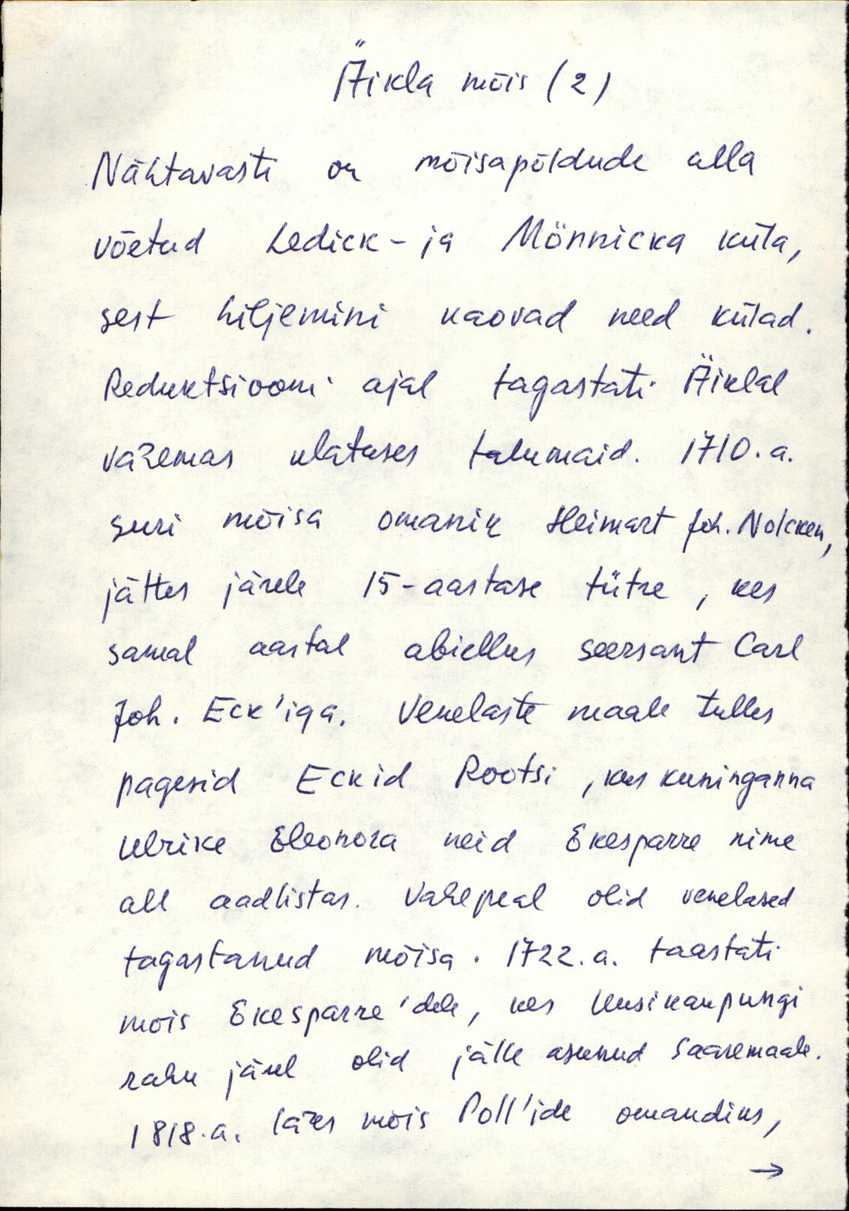 Äikla mõis (2)
Nähtavasti on mõisapõldude alla
võetud Ledick- ja Mönnicka küla,
sest hiljemini kaovad need külad.
Reduktsiooni ajal tagastati Äiklal
vähemas ulatuses talumaid. 1710.a.
suri mõisa omanik Heimart Joh. Nolcken,
jättes järele 15-aastase tütre, kes
samal aastal abiellus seersant Carl
Joh. Eck'iga. Venelaste maale tulles
pagesid Eckid Rootsi, kus kuninganna
Ulrike Eleonora neid Ekesparre nime
all aadlistas. Vahepeal olid venelased
tagastanud mõisa. 1722.a. taastati
mõis Ekesparre'dele, kes Uusikaupungi
rahu järel olid jälle asunud Saaremaale.
1818.a. läks mõis Poll'ide omandiks,
→